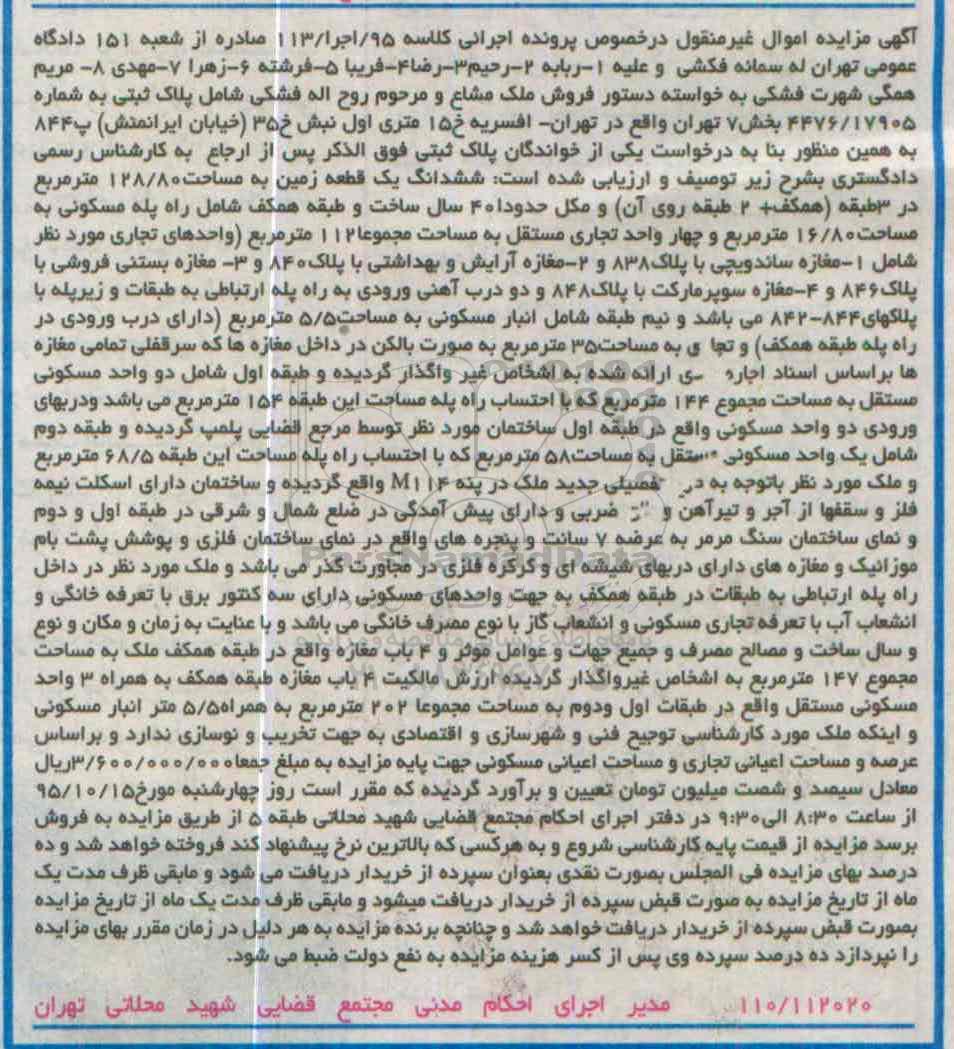 آگهی مزایده اموال غیرمنقول درخصوص پرونده اجرائی کلاسه ۹۵/اجرا/۱۱۳ صادره از شعبه ۱۵۱ دادگاه
عمومی تهران له سمانه فکشی و علیه ۱-ربابه ۲-رحیم۳-رضا۴-فریبا ۵-فرشته ۶-زهرا ۷-مهدی ۸- مریم
همگی شهرت فشکی به خواسته دستور فروش ملک مشاع و مرحوم روح اله فشکی شامل پلاک ثبتی به شماره
۴۴۷۶/۱۷۹۰۵ بخش۷ تهران واقع در تهران- افسریه خ۱۵ متری اول نبش خ۳۵ (خیابان ایرانمنش) پ۸۴۴
به همین منظور بنا به درخواست یکی از خواندگان پلاک ثبتی فوق الذکر پس از ارجاع به کارشناس رسمی
دادگستری بشرح زیر توصیف و ارزیابی شده است: ششدانگ یک قطعه زمین به مساحت۱۲۸/۸۰ مترمربع
در ۳طبقه (همکف+ ۲ طبقه روی آن) و مکل حدودا۴۰ سال ساخت و طبقه همکف شامل راه پله مسکونی به
مساحت۱۶/۸۰ مترمربع و چهار واحد تجاری مستقل به مساحت مجموعا۱۱۲ مترمربع (واحدهای تجاری مورد نظر
شامل ۱-مغازه ساندویچی با پلاک۸۳۸ و ۲-مغازه آرایش و بهداشتی با پلاک۸۴۰ و ۳- مغازه بستنی فروشی با
پلاک۸۴۶ و ۴-مغازه سوپرمارکت با پلاک۸۴۸ و دو درب آهنی ورودی به راه پله ارتباطی به طبقات و زیرپله با
پلاکهای۸۴۴-۸۴۲ می باشد و نیم طبقه شامل انبار مسکونی به مساحت۵/۵ مترمربع (دارای درب ورودی در
راه پله طبقه همکف) و تجا ی به مساحت۳۵ مترمربع به صورت بالکن در داخل مغازه ها که سرقفلی تمامی مغازه
ها براساس اسناد اجاره ی ارائه شده به اشخاص غیر واگذار گردیده و طبقه اول شامل دو واحد مسکونی
مستقل به مساحت مجموع ۱۴۴ مترمربع که با احتساب راه پله مساحت این طبقه ۱۵۴ مترمربع می باشد ودربهای
ورودی دو واحد مسکونی واقع در طبقه اول ساختمان مورد نظر توسط مرجع قضایی پلمپ گردیده و طبقه دوم
شامل یک واحد مسکونی مستقل به مساحت۵۸ مترمربع که با احتساب راه پله مساحت این طبقه ۶۸/۵ مترمربع
و ملک مورد نظر باتوجه به تفصیلی جدید ملک در پنه M۱۱۴ واقع گردیده و ساختمان دارای اسکلت نیمه
فلز و سقفها از آجر و تیرآهن و ضربی و دارای پیش آمدگی در ضلع شمال و شرقی در طبقه اول و دوم
و نمای ساختمان سنگ مرمر به عرضه ۷ سانت و پنجره های واقع در نمای ساختمان فلزی و پوشش پشت بام
موزائیک و مغازه های دارای دربهای شیشه ای و کرکره فلزی در مجاورت گذر می باشد و ملک مورد نظر در داخل
راه پله ارتباطی به طبقات در طبقه همکف به جهت واحدهای مسکونی دارای سه کنتور برق با تعرفه خانگی و
انشعاب آب با تعرفه تجاری مسکونی و انشعاب گاز با نوع مصرف خانگی می باشد و با عنایت به زمان و مکان و نوع
و سال ساخت و مصالح مصرف و جمیع جهات و عوامل موثر و ۴ باب مغازه واقع در طبقه همکف ملک به مساحت
مجموع ۱۴۷ مترمربع به اشخاص غیرواگذار گردیده ارزش مالکیت ۴ باب مغازه طبقه همکف به همراه ۳ واحد
مسکونی مستقل واقع در طبقات اول ودوم به مساحت مجموعا ۲۰۲ مترمربع به همراه۵/۵ متر انبار مسکونی
و اینکه ملک مورد کارشناسی توجیح فنی و شهرسازی و اقتصادی به جهت تخریب و نوسازی ندارد و براساس
عرصه و مساحت اعیانی تجاری و مساحت اعیانی مسکونی جهت پایه مزایده به مبلغ جمعا۳/۶۰۰/۰۰۰/۰۰۰ریال
معادل سیصد و شصت میلیون تومان تعیین و برآورد گردیده که مقرر است روز چهارشنبه مورخ۹۵/۱۰/۱۵
از ساعت ۸:۳۰ الی۹:۳۰ در دفتر اجرای احکام مجتمع قضایی شهید محلاتی طبقه ۵ از طریق مزایده به فروش
برسد مزایده از قیمت پایه کارشناسی شروع و به هرکسی که بالاترین نرخ پیشنهاد کند فروخته خواهد شد و ده
درصد بهای مزایده فی المجلس بصورت نقدی بعنوان سپرده از خریدار دریافت می شود و مابقی ظرف مدت یک
ماه از تاریخ مزایده به صورت قبض سپرده از خریدار دریافت میشود و مابقی ظرف مدت یک ماه از تاریخ مزایده
بصورت قبض سپرده از خریدار دریافت خواهد شد و چنانچه برنده مزایده به هر دلیل در زمان مقرر بهای مزایده
را نپردازد ده درصد سپرده وی پس از کسر هزینه مزایده به نفع دولت ضبط می شود.
۱۱۰/۱۱۲۰۲۰ مدیر اجرای احکام مدنی مجتمع قضایی شهید محلاتی تهران
ParsNamadData